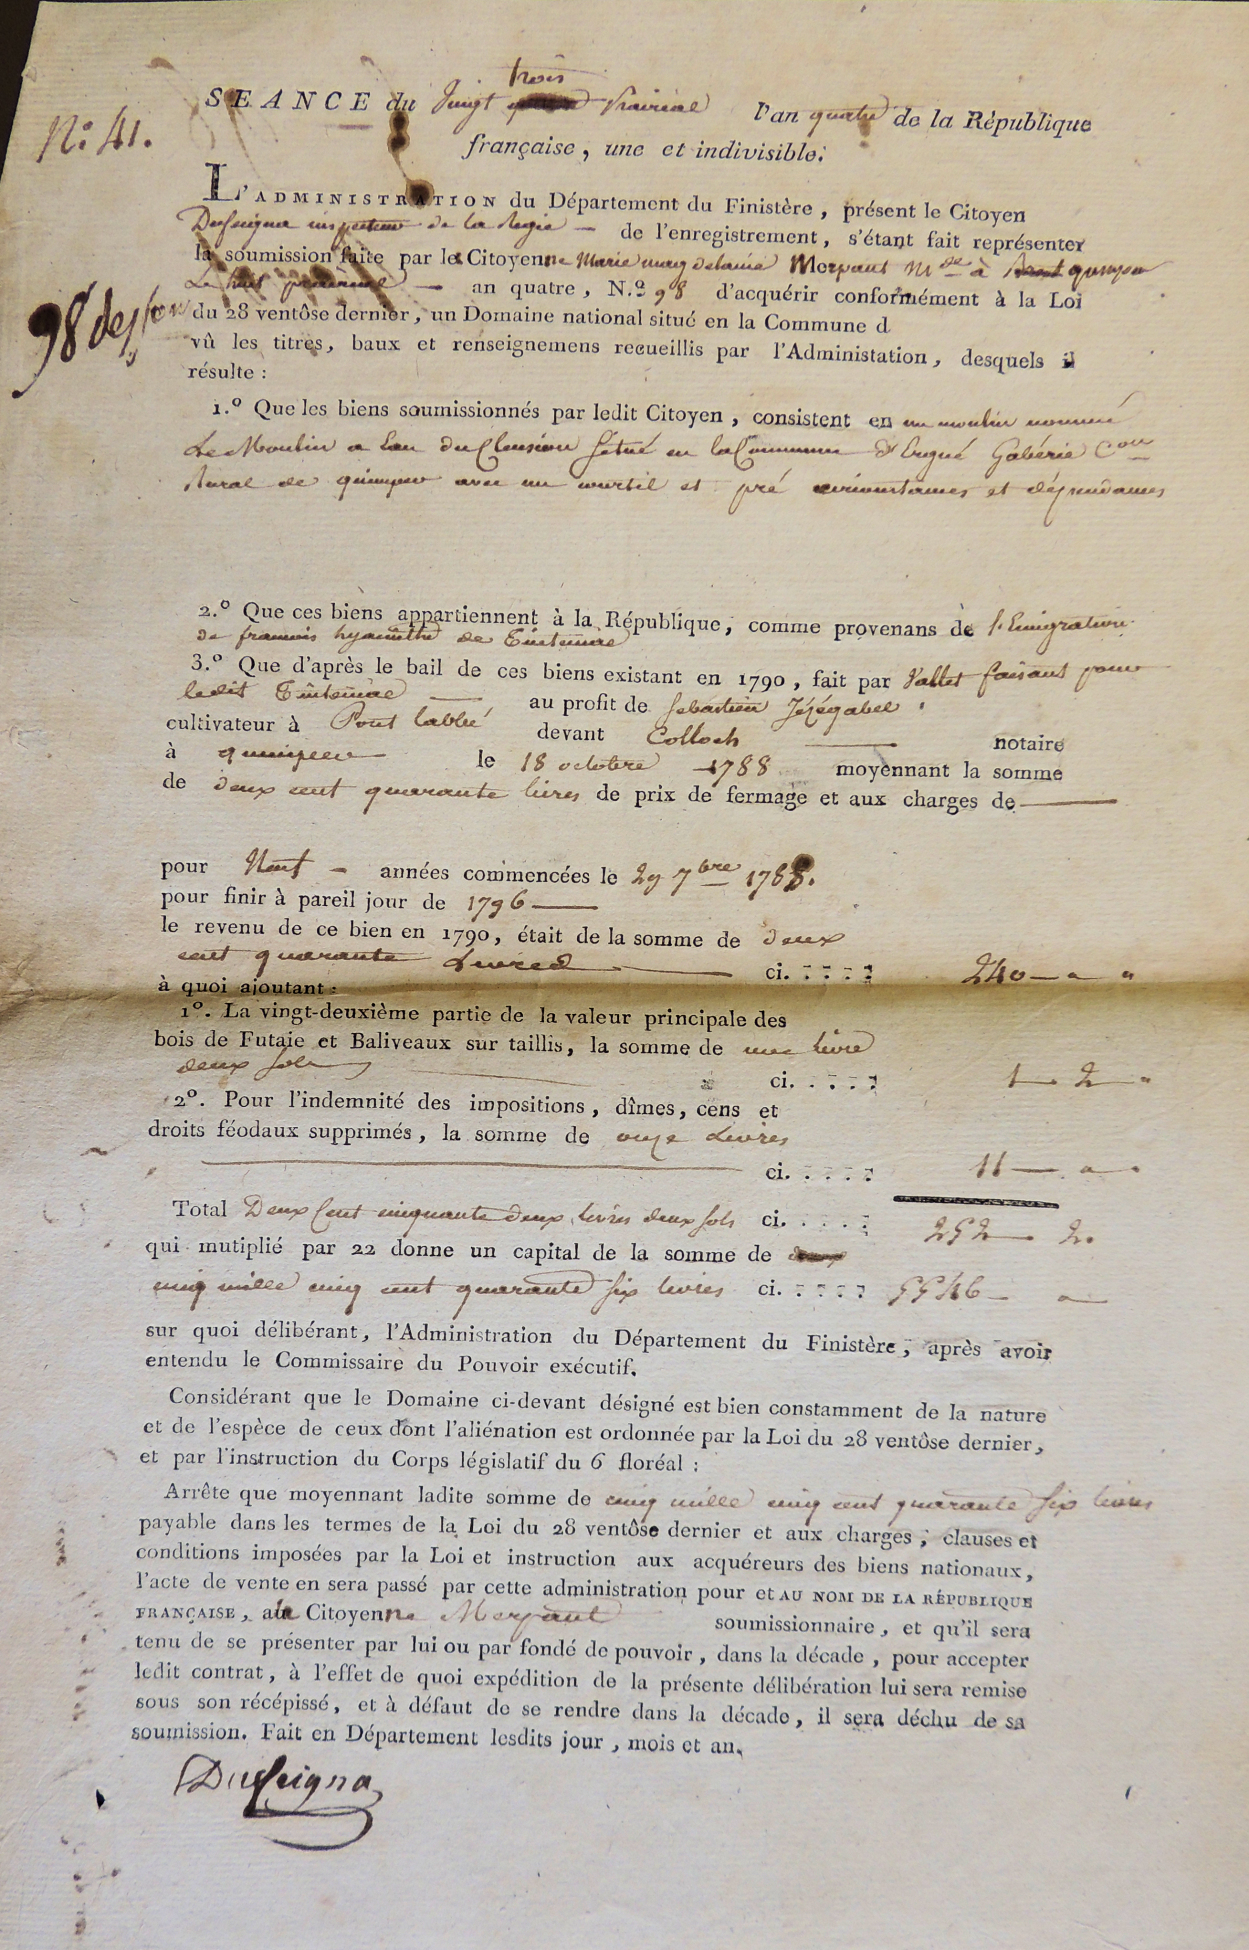 trois
SEANCE du Vingt Prairial l'an quatre de la République
N.o 41.
française, une et indivisible.
L'ADMINISTRATION du Département du Finistère, présent le Citoyen
Dufeigna inspecteur de la Regie — de l'enregistrement, s'étant fait représenter
la soumission faite par la Citoyenne Marie magdelaine Merpaut Mde à quimper
Le huit prairial — an quatre, N.o 98 d'acquérir conformément à la Loi
98
du 28 ventôse dernier, un Domaine national situé en la Commune d
vû les titres, baux et renseignemens recueillis par l'Administation, desquels il
résulte :
1.o Que les biens soumissionnés par ledit Citoyen, consistent en un moulin nommé
Le Moulin a Eau du Cleusiou situé en la Commune d'Ergué Gabéric Con
Rural de quimper avec un courtil et pré circonstances et dépendances
2.o Que ces biens appartiennent à la République, comme provenans de l'Emigration
de francois hyacinthe de Tinteniac
3.o Que d'après le bail de ces biens existant en 1790, fait par Vallet faisant pour
ledit Tinteniac — au profit de Sebastien Jézéqabel
cultivateur à Pont labbé devant Colloch — notaire
à quimper le 18 octobre 1788 moyennant la somme
de deux cent quarante livres de prix de fermage et aux charges de —
pour Neuf — années commencées le 29 7bre 1788.
pour finir à pareil jour de 1796 —
le revenu de ce bien en 1790, était de la somme de deux
cent quarante Livres — ci. . . . . 240 — " "
à quoi ajoutant :
1o. La vingt-deuxième partie de la valeur principale des
bois de Futaie et Baliveaux sur taillis, la somme de une livre
deux sols ci. . . . . 1 — 2 — "
2o. Pour l'indemnité des impositions, dîmes, cens et
droits féodaux supprimés, la somme de onze Livres
— ci. . . . . 11 — " "
Total Deux Cent cinquante deux livres deux sols ci. . . . . 252 — 2.
qui mutiplié par 22 donne un capital de la somme de
cinq mille cinq cent quarante six livres ci. . . . . 5546 — "
sur quoi délibérant, l'Administration du Département du Finistère, après avoir
entendu le Commissaire du Pouvoir exécutif.
Considérant que le Domaine ci-devant désigné est bien constamment de la nature
et de l'espèce de ceux dont l'aliénation est ordonnée par la Loi du 28 ventôse dernier,
et par l'instruction du Corps législatif du 6 floréal :
Arrête que moyennant ladite somme de cinq mille cinq cent quarante six livres
payable dans les termes de la Loi du 28 ventôse dernier et aux charges, clauses et
conditions imposées par la Loi et instruction aux acquéreurs des biens nationaux,
l'acte de vente en sera passé par cette administration pour et AU NOM DE LA RÉPUBLIQUE
FRANÇAISE, a la Citoyenne Merpaut soumissionnaire, et qu'il sera
tenu de se présenter par lui ou par fondé de pouvoir, dans la décade, pour accepter
ledit contrat, à l'effet de quoi expédition de la présente délibération lui sera remise
sous son récépissé, et à défaut de se rendre dans la décade, il sera déchu de sa
soumission. Fait en Département lesdits jour, mois et an.
Dufeigna